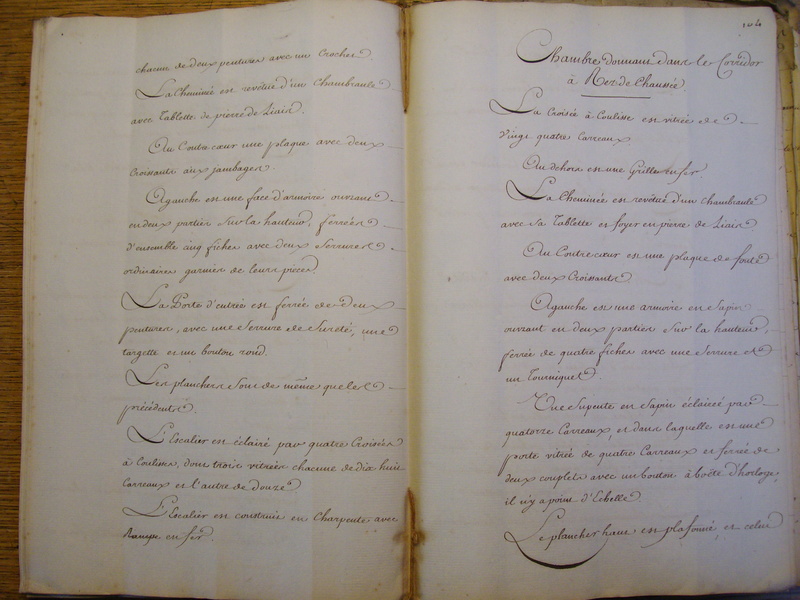 chacune de deux pentures avec un Crochet
La Cheminée est revêtue d'un Chambranle
avec Tablette de pierre de Liais.
Au Contre cœur une plaque avec deux
Croissants aux jambages.
Agauche est une face d'armoire ouvrante
en deux parties sur la hauteur, ferrées
d'ensemble cinq fiches avec deux Serrures
ordinaires garnies de leurs pièces.
La Porte d'entrée est ferrée de deux
pentures, avec une Serrure de Sureté, une
targette et un bouton rond.
Les planchers sont de même que les
précédents.
L'Escalier est éclairé par quatre Croisées
à Coulisses, dont trois vitrées chacune de dix huit
Carreaux et l'autre de douze
L'Escalier est construit en Charpente avec
Rampe en fer.
104
Chambre donnant dans le Corridor
à Rez de Chaussée
La Croisée à Coulisse est vitrée de
Vingt quatre Carreaux
Au dehors est une Grille en fer.
La Cheminée est revêtue d'un chambranle
avec sa Tablette et foyer en pierre de Liais
Au Contre cœur est une plaque de fonte
avec deux Croissants
Agauche est une armoire en Sapin
ouvrant en deux parties sur la hauteur,
ferrée de quatre fiches avec une Serrure et
un Tourniquet.
Une Supente en Sapin éclairée par
quatorze Carreaux, et dans laquelle est une
porte vitrée de quatre Carreaux et ferrée de
deux couplets avec un bouton à boëte d'horloge,
il n'y a point d'Echelle.
Le plancher haut est plafonné et celui